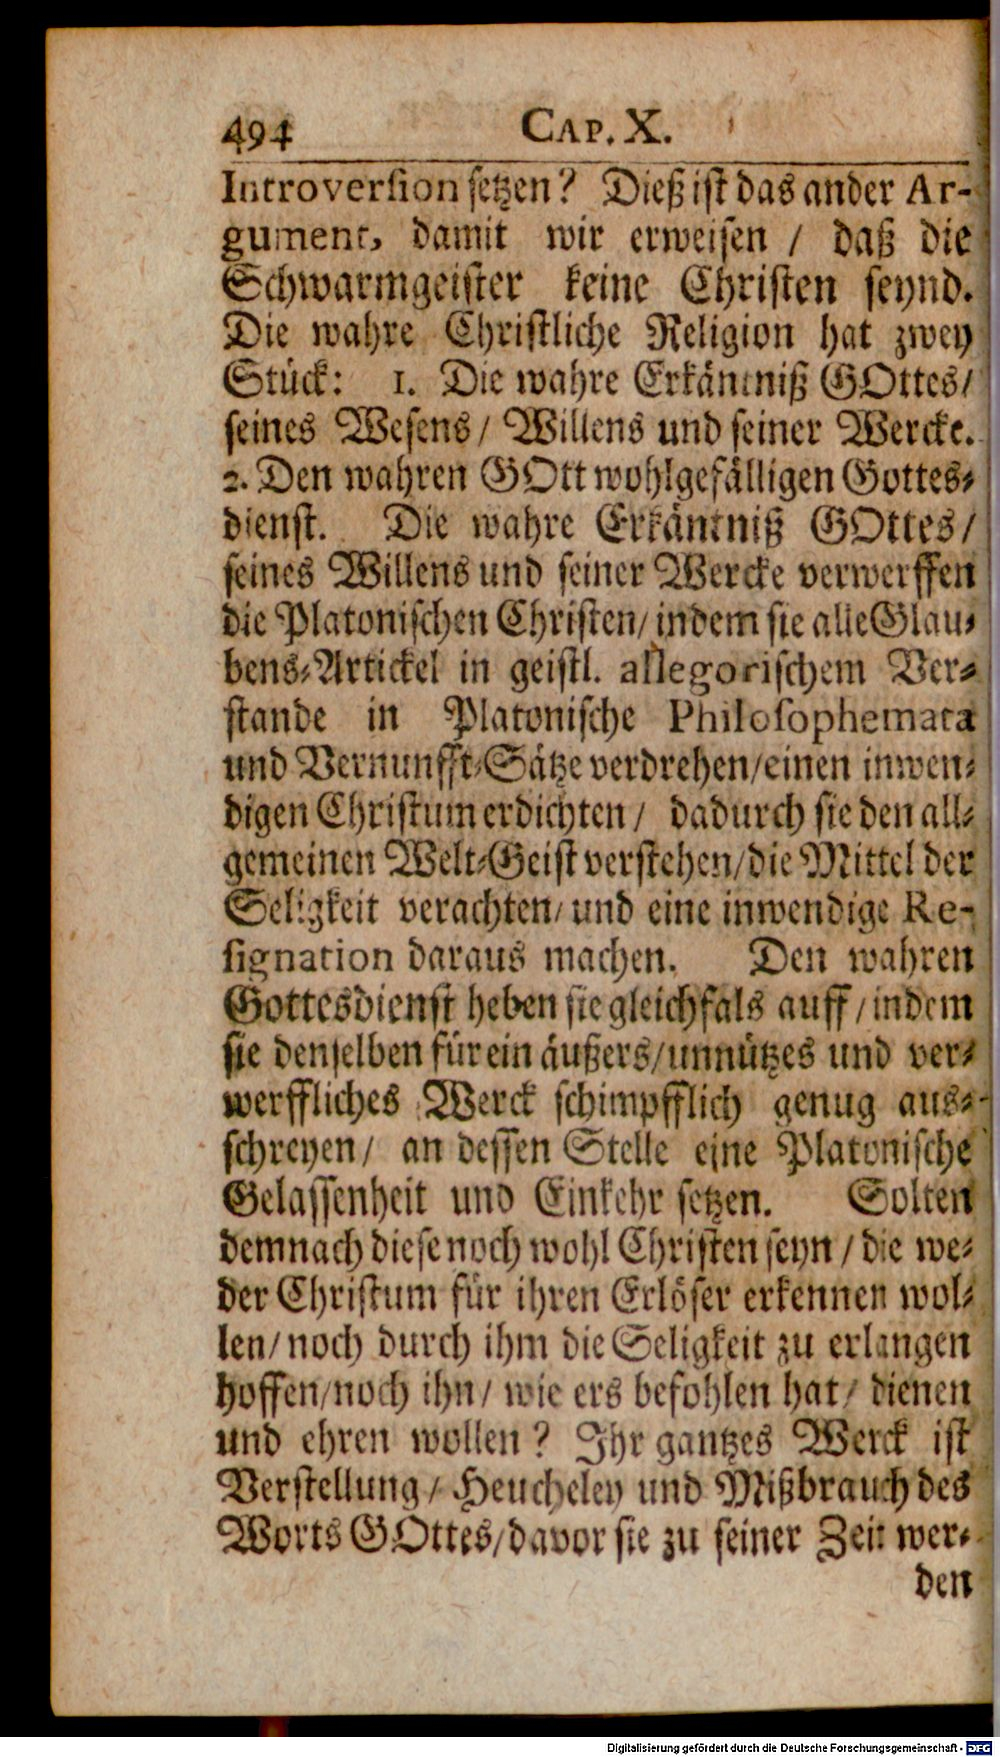 494 CAP. X.
Introversion setzen? Dieß ist das ander Ar-
gument, damit wir erweisen / daß die
Schwarmgeister keine Christen seynd.
Die wahre Christliche Religion hat zwey
Stück: 1. Die wahre Erkäntniß GOttes/
seines Wesens/ Willens und seiner Wercke.
2. Den wahren GOtt wohlgefälligen Gottes-
dienst. Die wahre Erkäntniß GOttes/
seines Willens und seiner Wercke verwerffen
die Platonischen Christen/ indem sie alle Glau-
bens-Artickel in geistl. allegorischem Ver-
stande in Platonische Philosophemata
und Vernunfft-Sätze verdrehen/einen inwen-
digen Christum erdichten / dadurch sie den all-
gemeinen Welt-Geist verstehen/die Mittel der
Seligkeit verachten/ und eine inwendige Re-
signation daraus machen. Den wahren
Gottesdienst heben sie gleichfals auff / indem
sie denselben für ein äußers/unnützes und ver-
werffliches Werck schimpfflich genug aus-
schreyen/ an dessen Stelle eine Platonische
Gelassenheit und Einkehr setzen. Solten
demnach diese noch wohl Christen seyn / die we-
der Christum für ihren Erlöser erkennen wol-
len/ noch durch ihm die Seligkeit zu erlangen
hoffen/noch ihn/ wie ers befohlen hat/ dienen
und ehren wollen? Ihr gantzes Werck ist
Verstellung / Heucheley und Mißbrauch des
Worts GOttes/davor sie zu seiner Zeit wer-
den
Digitalisierung gefördert durch die Deutsche Forschungsgemeinschaft - DFG